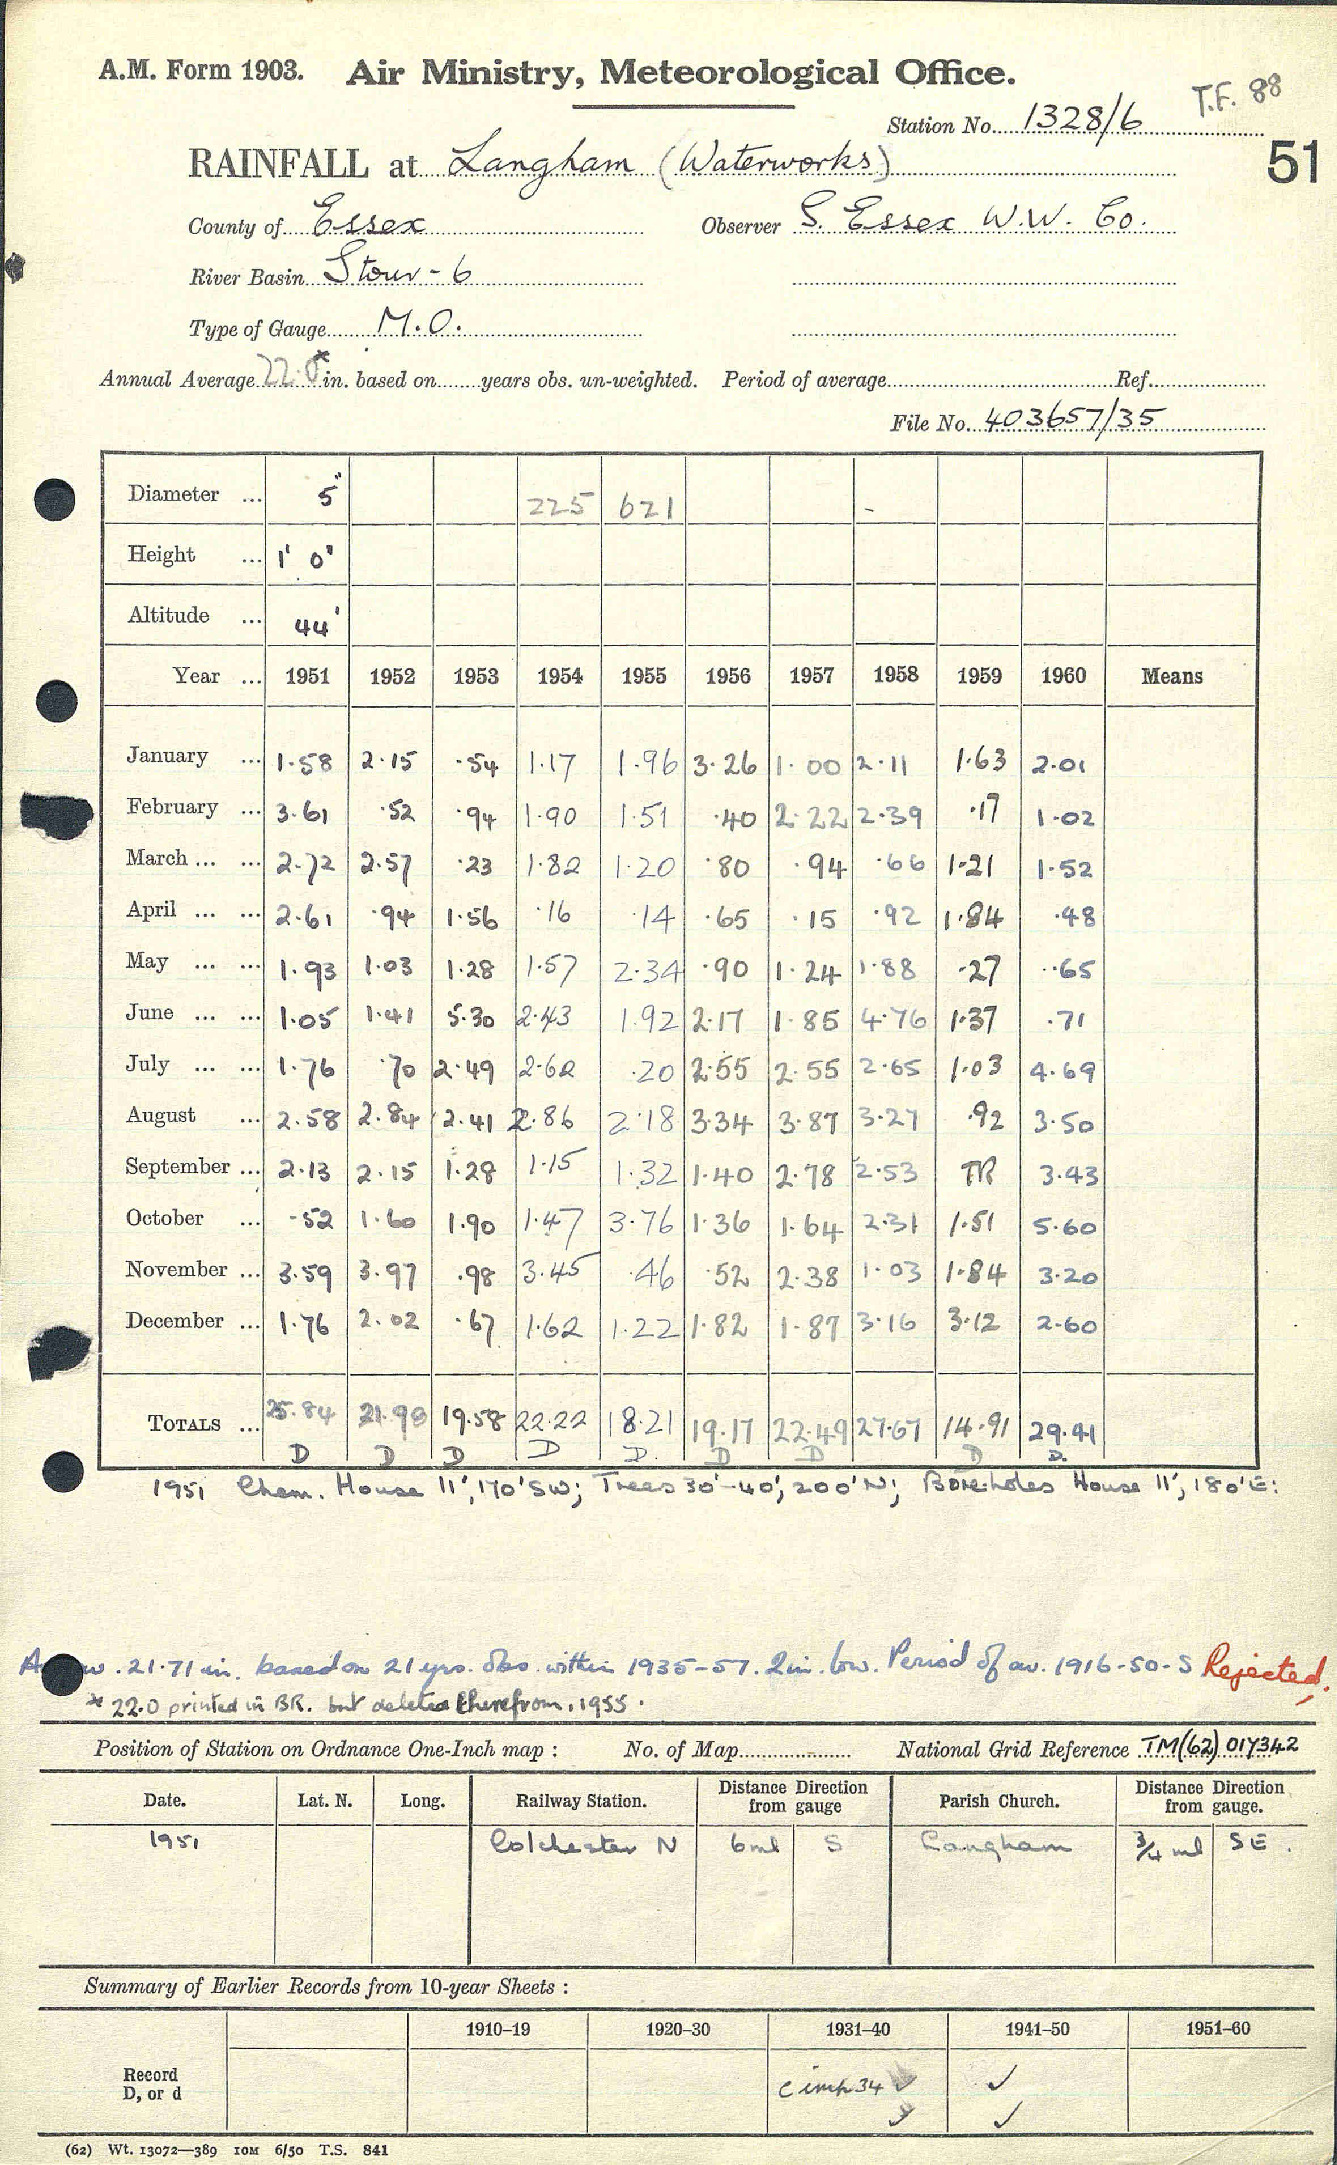 A.M. Form 1903. Air Ministry, Meteorological Office.
T.F. 88
Station No. 1328/6
51
RAINFALL at Langham (Waterworks)
County of Essex Observer S. Essex W.W. Co.
River Basin Stour - 6
Type of Gauge M.O.
Annual Average 22.0* in. based on years obs. un-weighted. Period of average Ref.
File No. 403657/35
Diameter ... 5" 225 621 -
Height ... 1' 0"
Altitude ... 44'
Year ... 1951 1952 1953 1954 1955 1956 1957 1958 1959 1960 Means
January ... 1.58 2.15 .54 1.17 1.96 3.26 1.00 2.11 1.63 2.01
February ... 3.61 .52 .94 1.90 1.51 .40 2.22 2.39 .17 1.02
March ... ... 2.72 2.57 .23 1.82 1.20 .80 .94 .66 1.21 1.52
April ... ... 2.61 .94 1.56 .16 .14 .65 .15 .92 1.84 .48
May ... ... 1.93 1.03 1.28 1.57 2.34 .90 1.24 1.88 .27 .65
June ... ... 1.05 1.41 5.30 2.43 1.92 2.17 1.85 4.76 1.37 .71
July ... ... 1.76 .70 2.49 2.62 .20 2.55 2.55 2.65 1.03 4.69
August ... 2.58 2.84 2.41 2.86 2.18 3.34 3.87 3.27 .92 3.50
September ... 2.13 2.15 1.28 1.15 1.32 1.40 2.78 2.53 TR 3.43
October ... .52 1.60 1.90 1.47 3.76 1.36 1.64 2.31 1.51 5.60
November ... 3.59 3.97 .98 3.45 .46 .52 2.38 1.03 1.84 3.20
December ... 1.76 2.02 .67 1.62 1.22 1.82 1.87 3.16 3.12 2.60
TOTALS ... 25.84 21.90 19.58 22.22 18.21 19.17 22.49 27.67 14.91 29.41
D D D D D D D D D
1951 Chem. House 11', 170' SW; Trees 30'-40', 200' N; Boreholes House 11', 180' E:
21.71 in. based on 21 yrs. obs. within 1935-57. 2 in. low. Period of av. 1916-50-S Rejected.
* 22.0 printed in BR. but deleted therefrom, 1955.
Position of Station on Ordnance One-Inch map : No. of Map National Grid Reference TM(62) 017342
Date. Lat. N. Long. Railway Station. Distance from gauge Direction Parish Church. Distance from gauge. Direction
1951 Colchester N 6ml S Langham 3/4 ml SE.
Summary of Earlier Records from 10-year Sheets :
1910–19 1920–30 1931–40 1941–50 1951–60
Record D, or d c imp 34 ✓ ✓
✓ ✓
(62) Wt. 13072—389 10M 6/50 T.S. 841